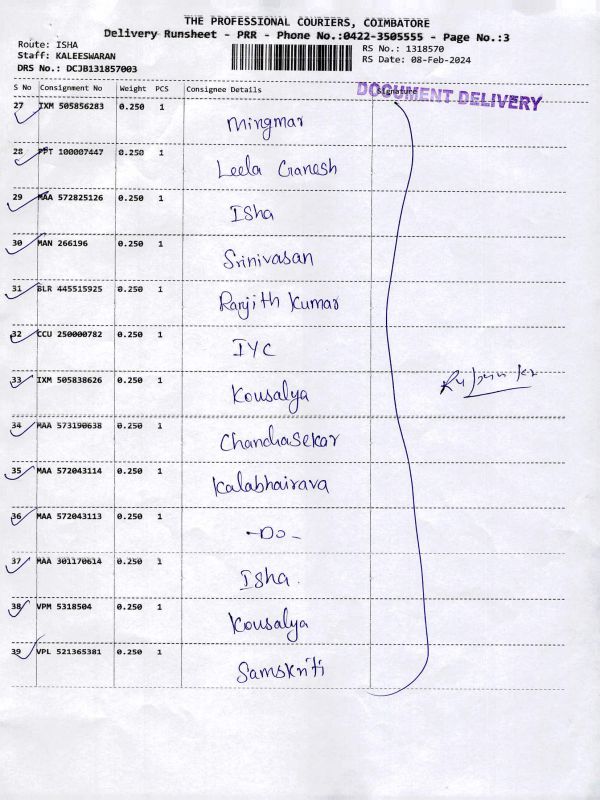 THE PROFESSIONAL COURIERS, COIMBATORE
Delivery Runsheet - PRR - Phone No.:0422-3505555 - Page No.:3
Route: ISHA
RS No.: 1318570
Staff: KALEESWARAN
RS Date: 08-Feb-2024
DRS No.: DCJB131857003
S No Consignment No Weight PCS Consignee Details Signature
DOCUMENT DELIVERY
27 IXM 505856283 0.250 1 Mingmar
28 PPT 100007447 0.250 1 Leela Ganesh
29 MAA 572825126 0.250 1 Isha
30 MAN 266196 0.250 1 Srinivasan
31 BLR 445515925 0.250 1 Ranjith Kumar
32 CCU 250000782 0.250 1 IYC
33 IXM 505838626 0.250 1 Kousalya
34 MAA 573190638 0.250 1 Chandrasekar
35 MAA 572043114 0.250 1 Kalabhairava
36 MAA 572043113 0.250 1 -Do-
37 MAA 301170614 0.250 1 Isha.
38 VPM 5318504 0.250 1 Kousalya
39 VPL 521365381 0.250 1 Samskriti